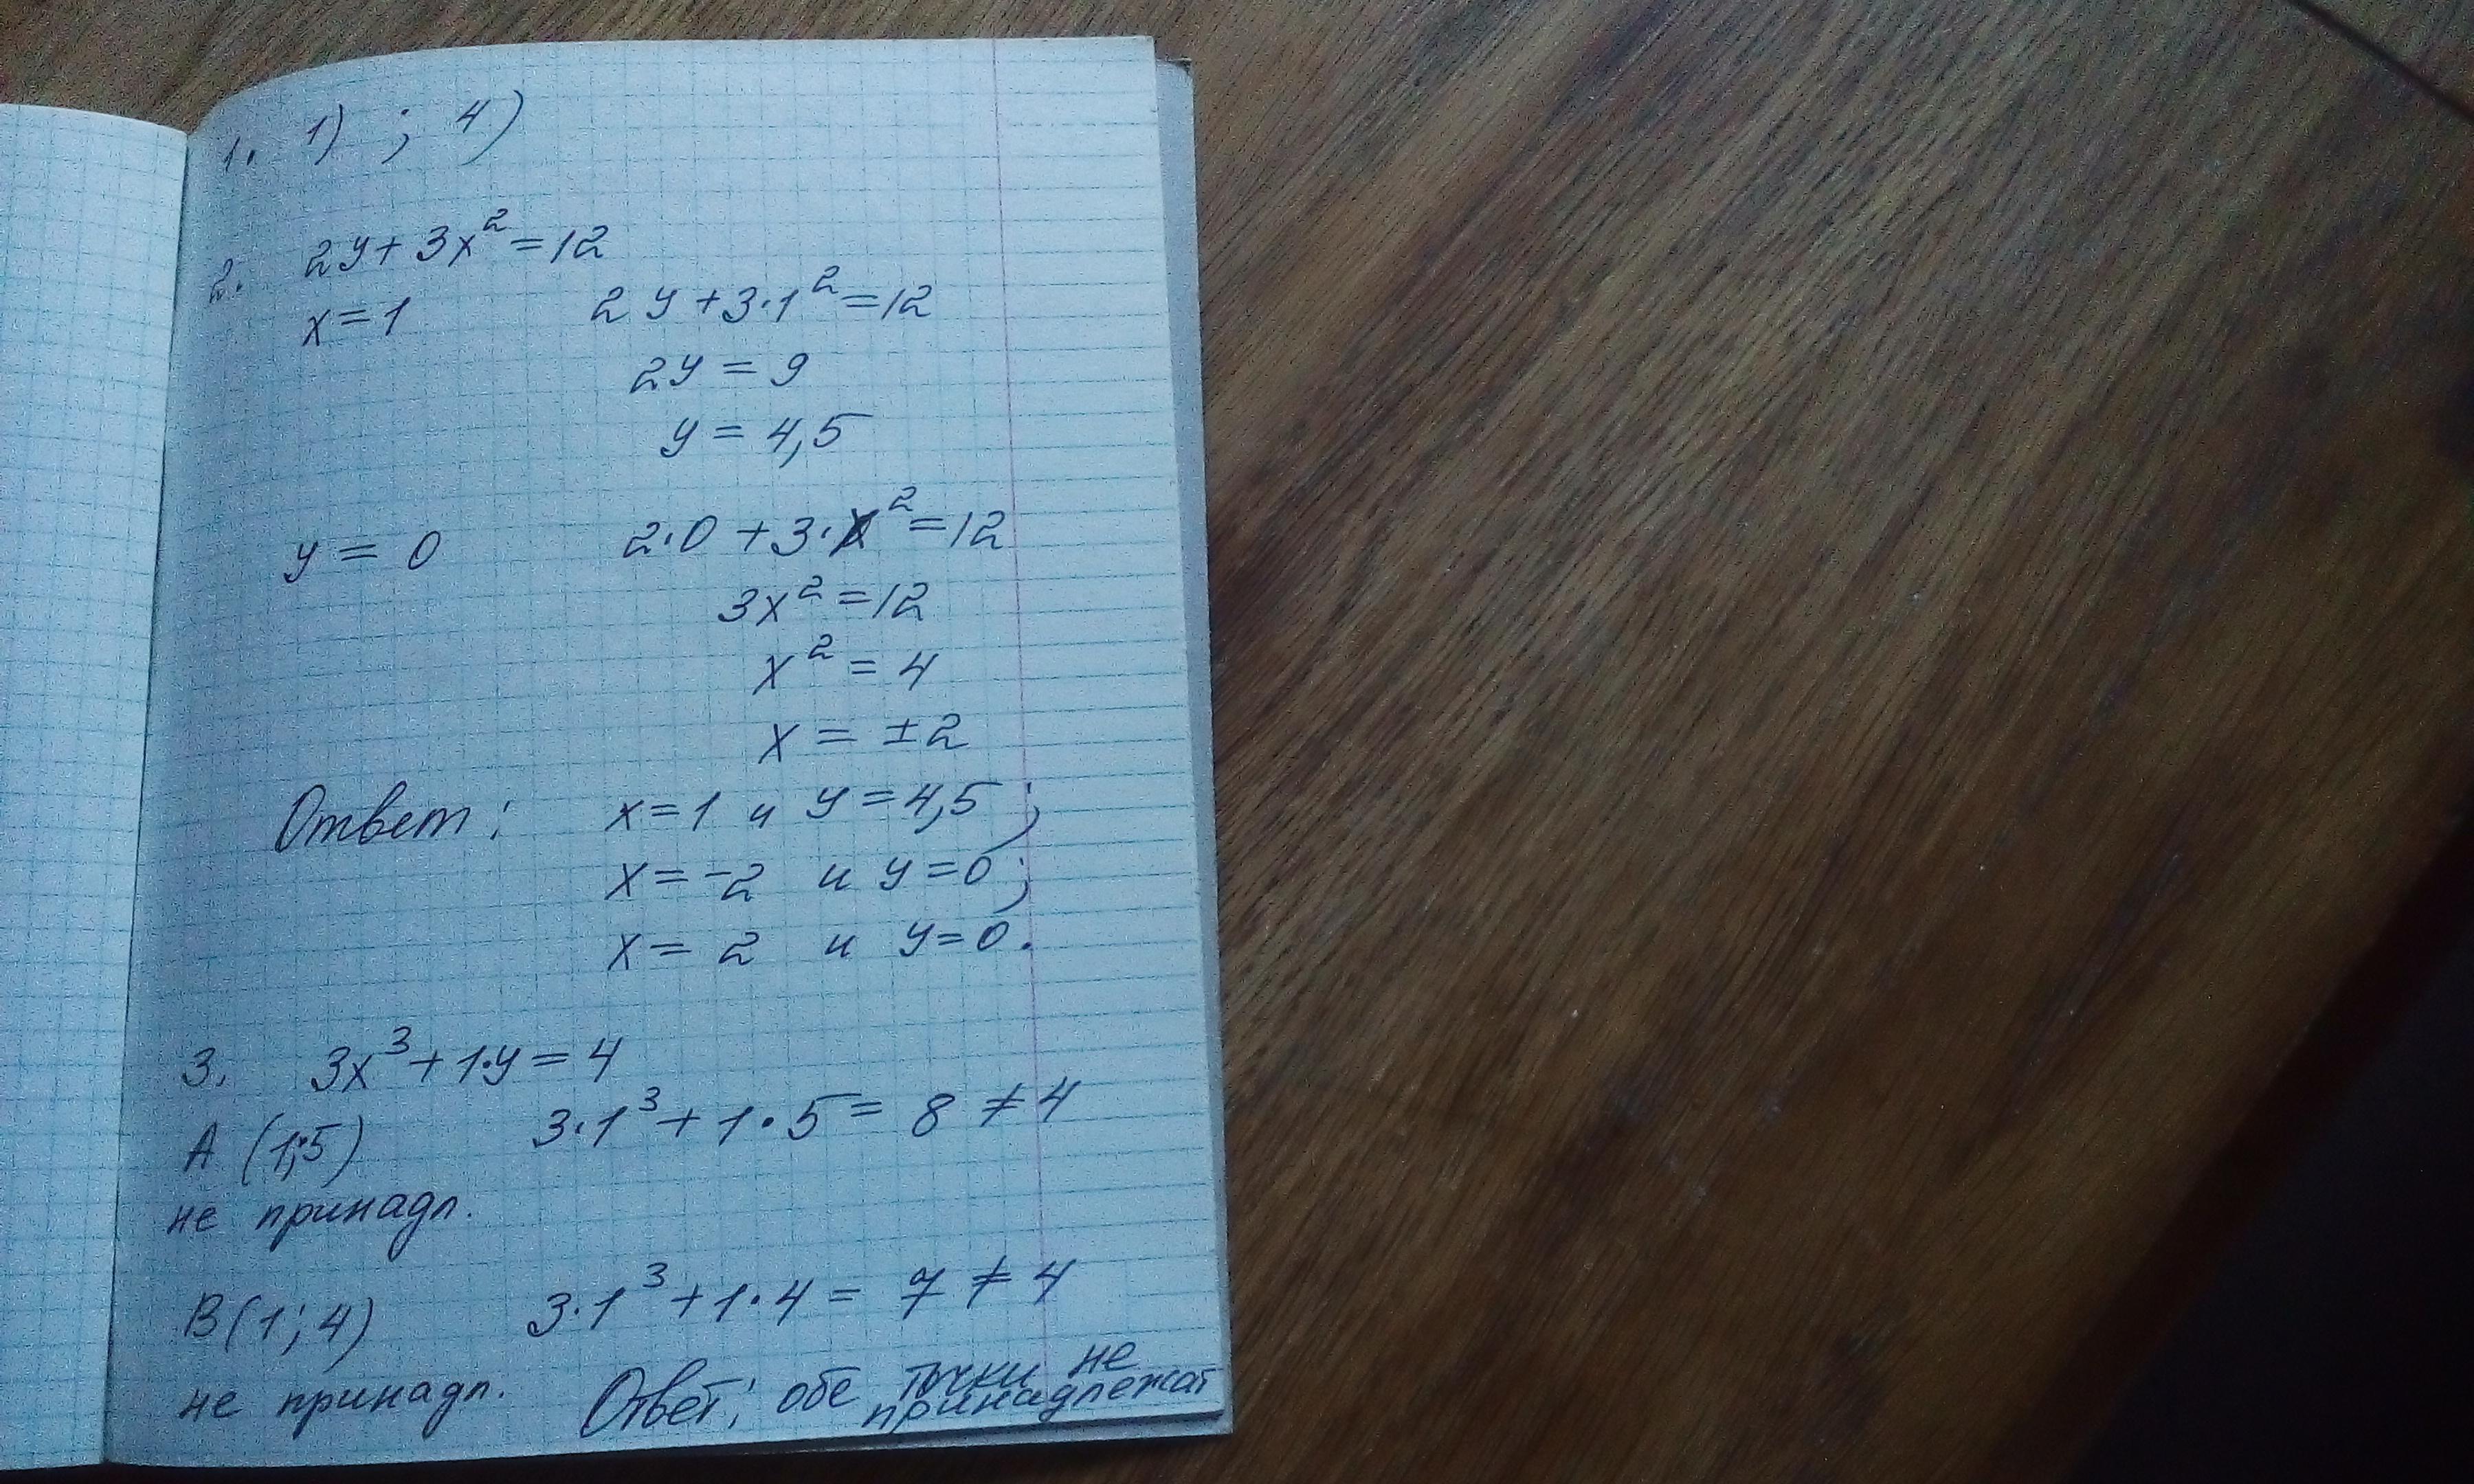 1. 1) ; 4)
2. 2y + 3x² = 12
x = 1 2y + 3·1² = 12
2y = 9
y = 4,5
y = 0 2·0 + 3·x² = 12
3x² = 12
x² = 4
x = ±2
Ответ: x = 1 и y = 4,5;
x = -2 и y = 0;
x = 2 и y = 0.
3. 3x³ + 1·y = 4
A (1;5) 3·1³ + 1·5 = 8 ≠ 4
не принадл.
B(1;4) 3·1³ + 1·4 = 7 ≠ 4
не принадл. Ответ: обе точки не
принадлежат